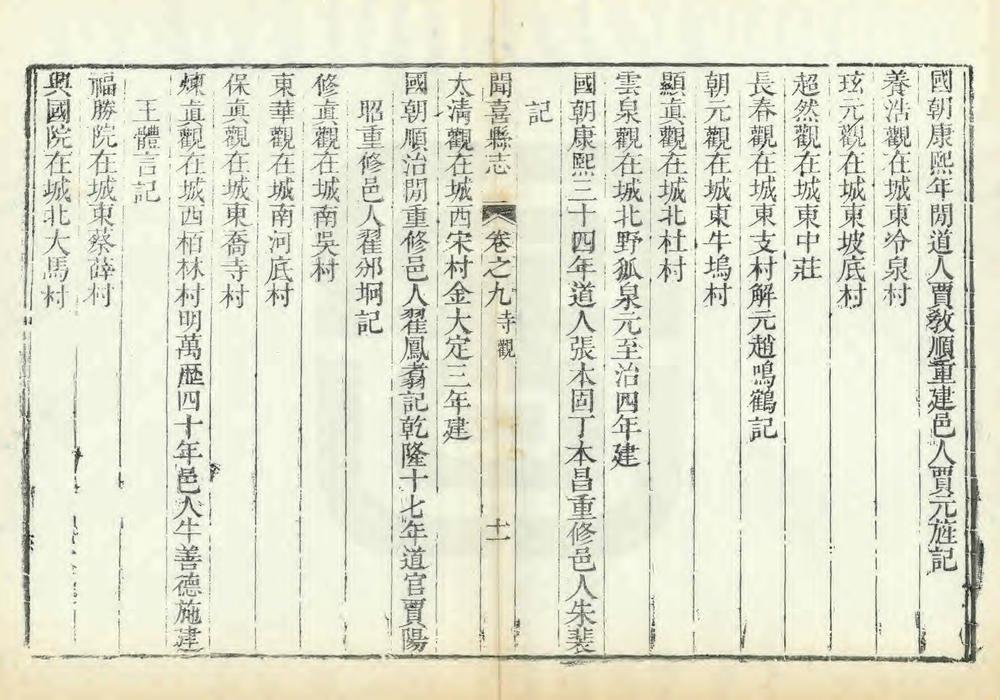 國朝康熙年閒道人賈敎順重建邑人賈元旌記
養浩觀在城東冷泉村
玹元觀在城東坡底村
超然觀在城東中莊
長春觀在城東支村解元趙鳴鶴記
朝元觀在城東牛塢村
顯眞觀在城北杜村
雲泉觀在城北野狐泉元至治四年建
國朝康熙三十四年道人張本固丁本昌重修邑人朱裴
記
聞喜縣志 卷之九 寺觀 十一
太淸觀在城西宋村金大定三年建
國朝順治閒重修邑人翟鳳翥記乾隆十七年道官賈陽
昭重修邑人翟邠坰記
修眞觀在城南吳村
東華觀在城南河底村
保眞觀在城東喬寺村
煉眞觀在城西栢林村明萬歷四十年邑人牛善德施建
王體言記
福勝院在城東蔡薛村
興國院在城北大馬村